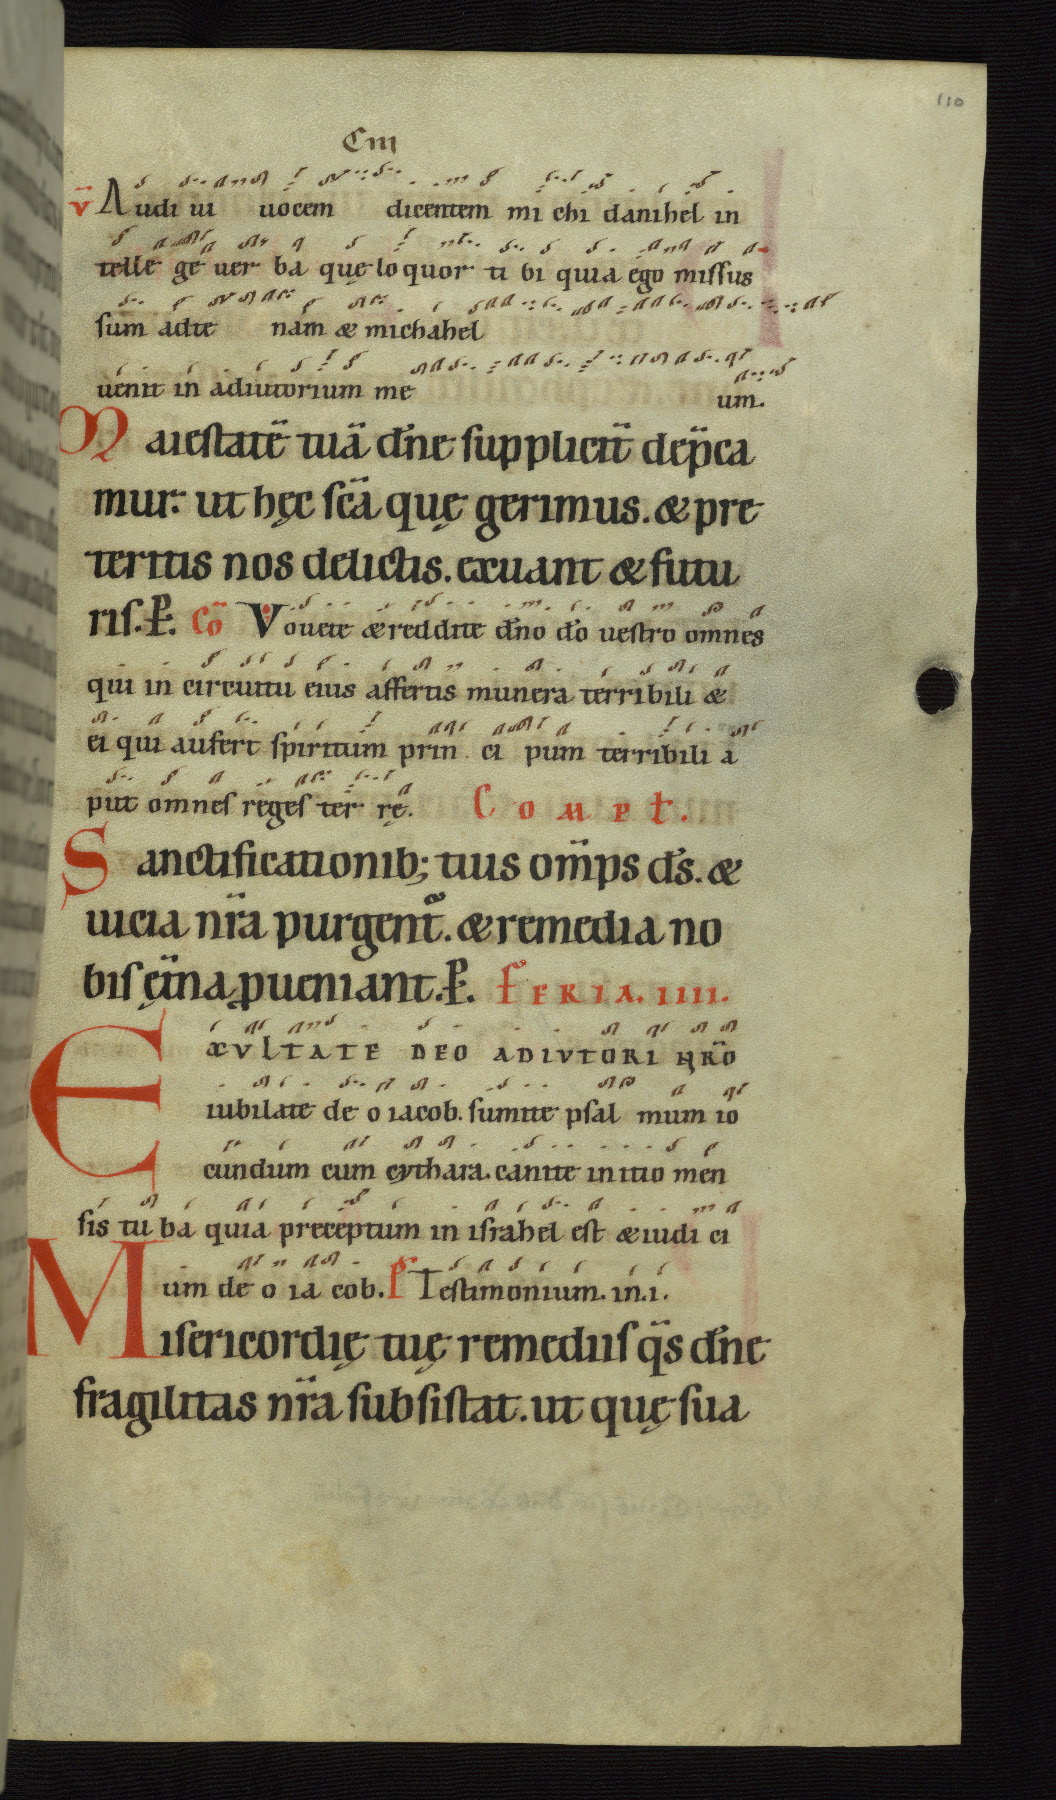 110
Cm
v̄ Audi ui uocem dicentem mi chi danihel in
telle ge uer ba quę loquor ti bi quia ego missus
sum adte nam & michahel
uenit in adiutorium me um.
Maiestatē tuā dn̄e suppliciť dep̄ca
mur: ut hęc sc̄a quę gerimus. & pre
teritis nos delictis. exuant & futu
ris. P̱. Co͞ Vouete & reddite dn̄o do͞ uestro omnes
qui in circuitu eius affertis munera terribili &
ei qui aufert spiritum prin ci pum terribili a
put omnes reges ter rę. COMPŁ.
Sanctificationib; tuis om̄ps ds̄. &
uicia nr̄a purgenť. & remedia no
bis ęt̄na ꝓueniant. P̱. FERIA. IIII.
EXVLTATE DEO ADIVTORI NRO͞
iubilate de o iacob. sumite psal mum io
cundum cum cythara. canite initio men
sis tu ba quia preceptum in israhel est & iudi ci
um de o ia cob. P̄s Testimonium. in. i.
Misericordię tuę remediis qs̄ dn̄e
fragilitas nr̄a subsistat. ut quę sua